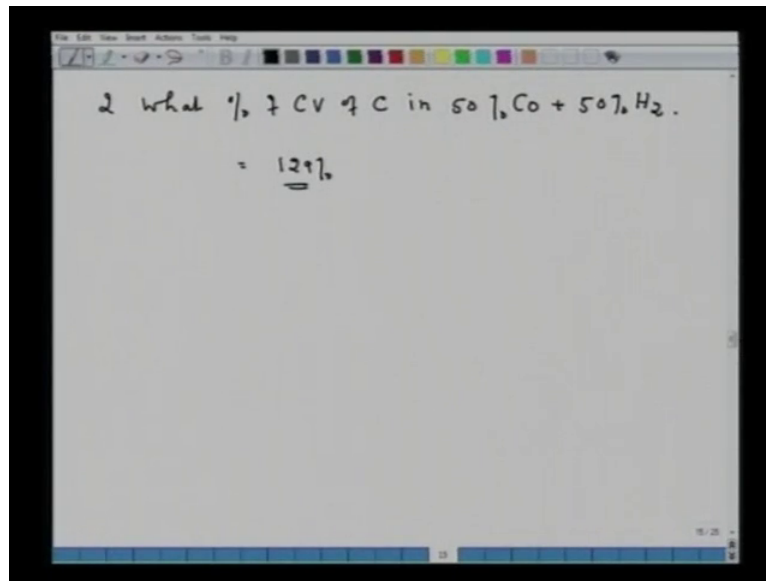 File Edit View Insert Actions Tools Help
2 what % of CV of C in 50 % Co + 50% H2.
= 129%
15/25
15